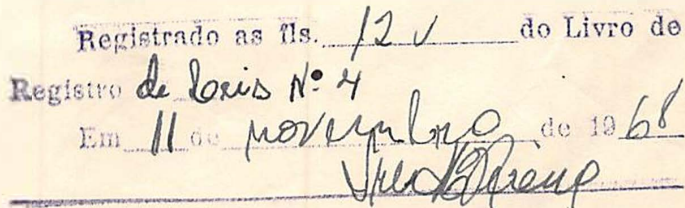 Registrado as fls. 12 v do Livro de
Registro de Leis Nº 4
Em 11 de novembro de 1968